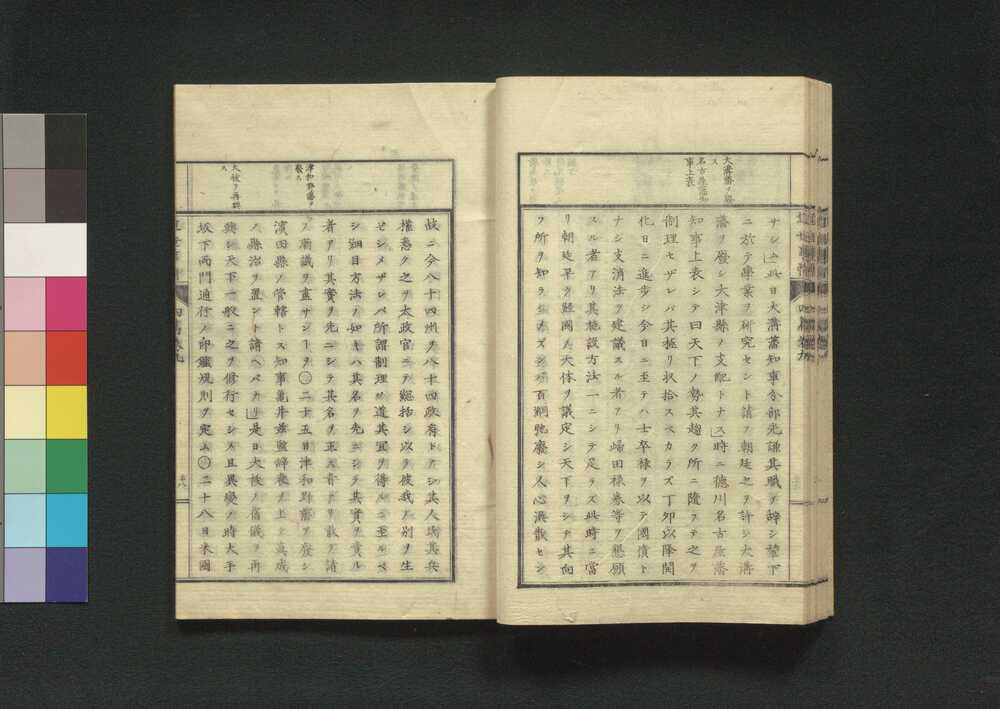 大溝藩ヲ廢
ス
名古屋藩知
事上表
サシム此日大溝藩知事分部光謙其職ヲ辭シ輦下
ニ於テ學業ヲ研究セント請フ朝廷之ヲ許シ大溝
藩ヲ廢シ大津縣ノ支配トナス時ニ德川名古屋藩
知事上表シテ曰天下ノ勢其趨ク所ニ隨テ之ヲ
制理セザレバ其極リ收拾スベカラズ丁卯以降開
化日ニ進歩シ今日ニ至テハ士卒祿ヲ以テ國債ト
ナシ支消法ヲ建議スル者アリ歸田祿券等ヲ懇願
スル者アリ其施設方法一ニシテ足ラズ此時ニ當
リ朝廷早ク經國ノ大体ヲ議定シ天下ヲシテ其向
フ所ヲ知ラシメズンバ百綱弛廢シ人心渙散セン
津和野藩ヲ
廢ス
大祓ヲ再興
ス
故ニ今八十四州ヲ八十四政府トナシ其人民其兵
權悉ク之ヲ太政官ニテ總括シ以テ彼我ノ別ヲ生
ゼシメザレバ所謂制理ノ道其宜ヲ得ルニ至ルベ
シ細目方法ノ如キハ其名ヲ先ニシテ其實ヲ責ル
者アリ其實ヲ先ニシテ其名ヲ正ス者アリ敢テ請
フ廟議ヲ盡サントヲ〇二十五日津和野藩ヲ廢シ
濱田縣ノ管轄トス知事龜井茲監辭表ヲ上シ眞成
ノ縣治ヲ置ント請ヘバナリ是日大祓ノ舊儀ヲ再
興シ天下一般ニ之ヲ修行セシメ且異變ノ時大手
坂下兩門通行ノ印鑑規則ヲ定ム〇二十八日米國